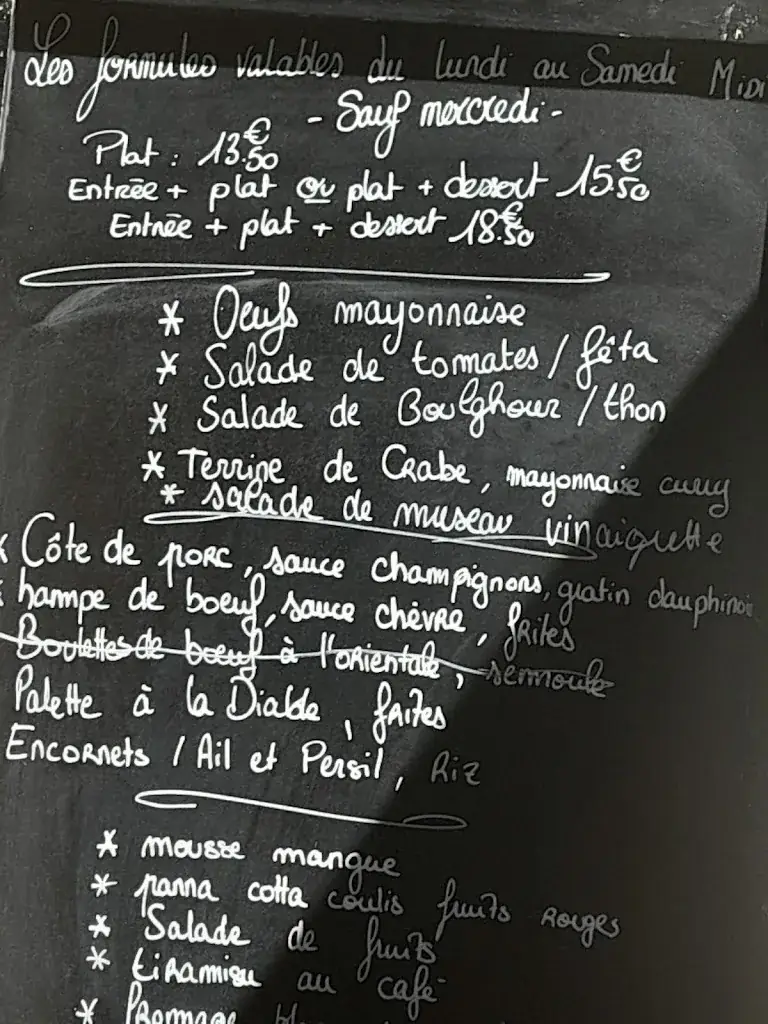 Les formules valables du lundi au Samedi Midi
- Sauf mercredi -
Plat : 13.50€
Entrée + plat ou plat + dessert 15.50€
Entrée + plat + dessert 18.50€
* Oeufs mayonnaise
* Salade de tomates / fêta
* Salade de Boulghour / thon
* Terrine de Crabe, mayonnaise curry
* salade de museau vinaigrette
* Côte de porc, sauce champignons, gratin dauphinois
* hampe de boeuf, sauce chèvre, frites
Boulettes de boeuf à l'orientale, semoule
Palette à la Diable, frites
Encornets / Ail et Persil, Riz
* mousse mangue
* panna cotta coulis fruits rouges
* Salade de fruits
* tiramisu au café
* Fromage